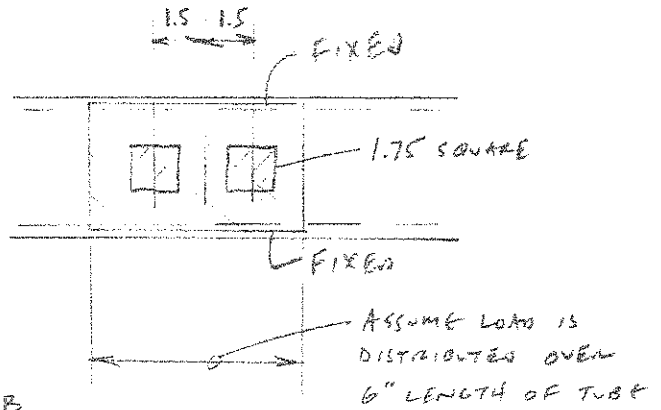 1.5 1.5
FIXED
1.75 SQUARE
FIXED
6
ASSUME LOAD IS
DISTRIBUTED OVER
6" LENGTH OF TUBE
B